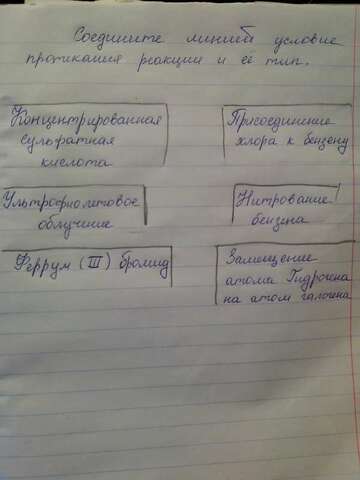 Соедините линией условие
протикания реакции и её тип.
Концентрированная
сульфатная
кислота
Присоединение
хлора к бензену
Ультрофиолетовое
облучение
Нитрование
бензена
Феррум (III) бромид
Замещение
атома Гидрогена
на атом галогена